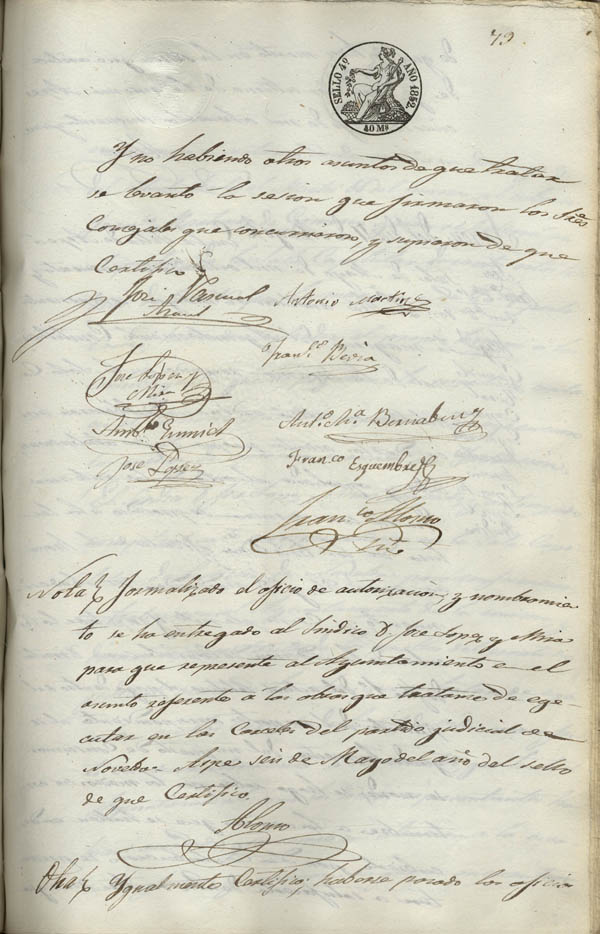 79.
SELLO 4º AÑO 1852.
40 Ms
Y no habiendo otros asuntos de que tratar
se levanto la sesion que firmaron los Sres
Concejales que concurrieron, y supieron de que
Certifico
José Pascual Antonio Martinez
Franco
José López y
Mira
Anto Ma Bernabeu
José Lopez Franco Esquembre
Franco Alonso
Srio
Nota Formalizado el oficio de autorizacion, y nombramien
to se ha entregado al Sindico D. Jose Lopez y Mira
para que represente al Ayuntamiento en el
asunto referente a las obras que tratan de ege-
cutar en las Carceles del partido judicial de
Novelda. Aspe seis de Mayo del año del sello
de que Certifico
Alonso
Otra Ygualmente Certifico; haberse pasado los oficios